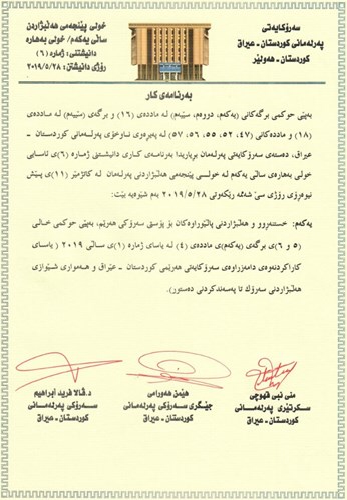 سەرۆکایەتی
پەرلەمانی کوردستان - عیراق
کوردستان - هەولێر
خولی پێنجەمی هەڵبژاردن
ساڵی یەکەم/ خولی بەهارە
دانیشتنی: ژمارە (٦)
ڕۆژی دانیشتن: ٢٠١٩/٥/٢٨
بەرنامەی کار
بەپێی حوکمی برگەکانی (یەکەم، دووەم، سێیەم) لە ماددەی (١٦) و برگەی (سێیەم) لە ماددەی
(١٨) و ماددەکانی (٤٧، ٥٢، ٥٥، ٥٦، ٥٧) لە پەیڕەوی ناوخۆی پەرلەمانی کوردستان -
عیراق، دەستەی سەرۆکایەتی پەرلەمان بڕیاریدا بەرنامەی کاری دانیشتنی ژمارە (٦)ی ئاسایی
خولی بەهارەی ساڵی یەکەم لە خولی پێنجەمی هەڵبژاردنی پەرلەمان لە کاتژمێر (١١)ی پێش
نیوەڕۆی ڕۆژی سێ شەممە ڕێکەوتی ٢٠١٩/٥/٢٨ بەم شێوەیە بێت:
یەکەم: خستنەڕوو و هەڵبژاردنی پاڵێوراوەکان بۆ پۆستی سەرۆکی هەرێم، بەپێی حوکمی خاڵی
(٥ و ٦)ی برگەی (یەکەم)ی ماددەی (٤) لە یاسای ژمارە (١)ی ساڵی ٢٠١٩ (یاسای
کاراکردنەوەی دامەزراوەی سەرۆکایەتی هەرێمی کوردستان - عێراق و هەمواری شێوازی
هەڵبژاردنی سەرۆک تا پەسەندکردنی دەستور).
منی نبی قهوچی
سکرتێری پەرلەمانی
کوردستان - عیراق
هێمن هەورامی
جێگری سەرۆکی پەرلەمانی
کوردستان - عیراق
د.ڤالا فرید ابراهیم
سەرۆکی پەرلەمانی
کوردستان - عیراق